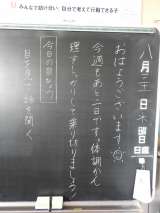 みんなで助け合い 自分で考えて行動できる子
八月二十一日(木曜日)
日直
おはようございます。
今週もあと二日です。体調かん
理をしっかりして乗り切りましょう!
今日のめあて
目を見て話を聞く。